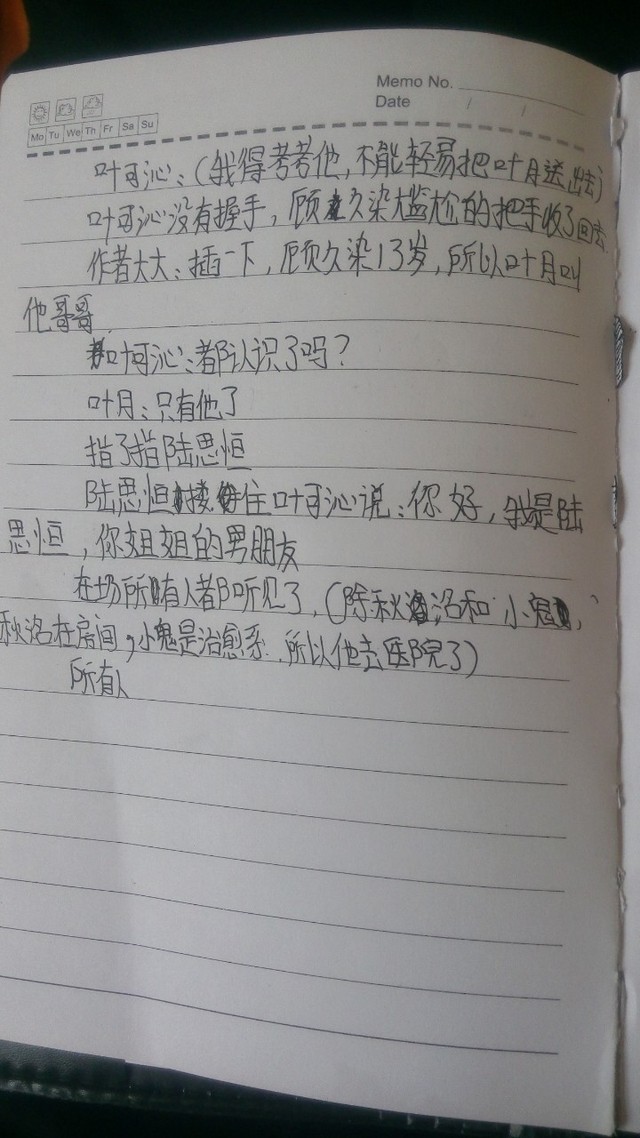 Memo No.
Date / /
Mo Tu We Th Fr Sa Su
叶可沁:(我得考考他,不能轻易把叶月送出去)
叶可沁没有握手,顾久染尴尬的把手收了回去.
作者大大:插一下,顾久染13岁,所以叶月叫
他哥哥.
叶可沁:都认识了吗?
叶月:只有他了
指了指陆思恒
陆思恒搂住叶可沁说:你好,我是陆
思恒,你姐姐的男朋友
在场所有人都听见了,(除秋洺和小鬼,
秋洺在房间,小鬼是治愈系.所以他去医院了)
所有人